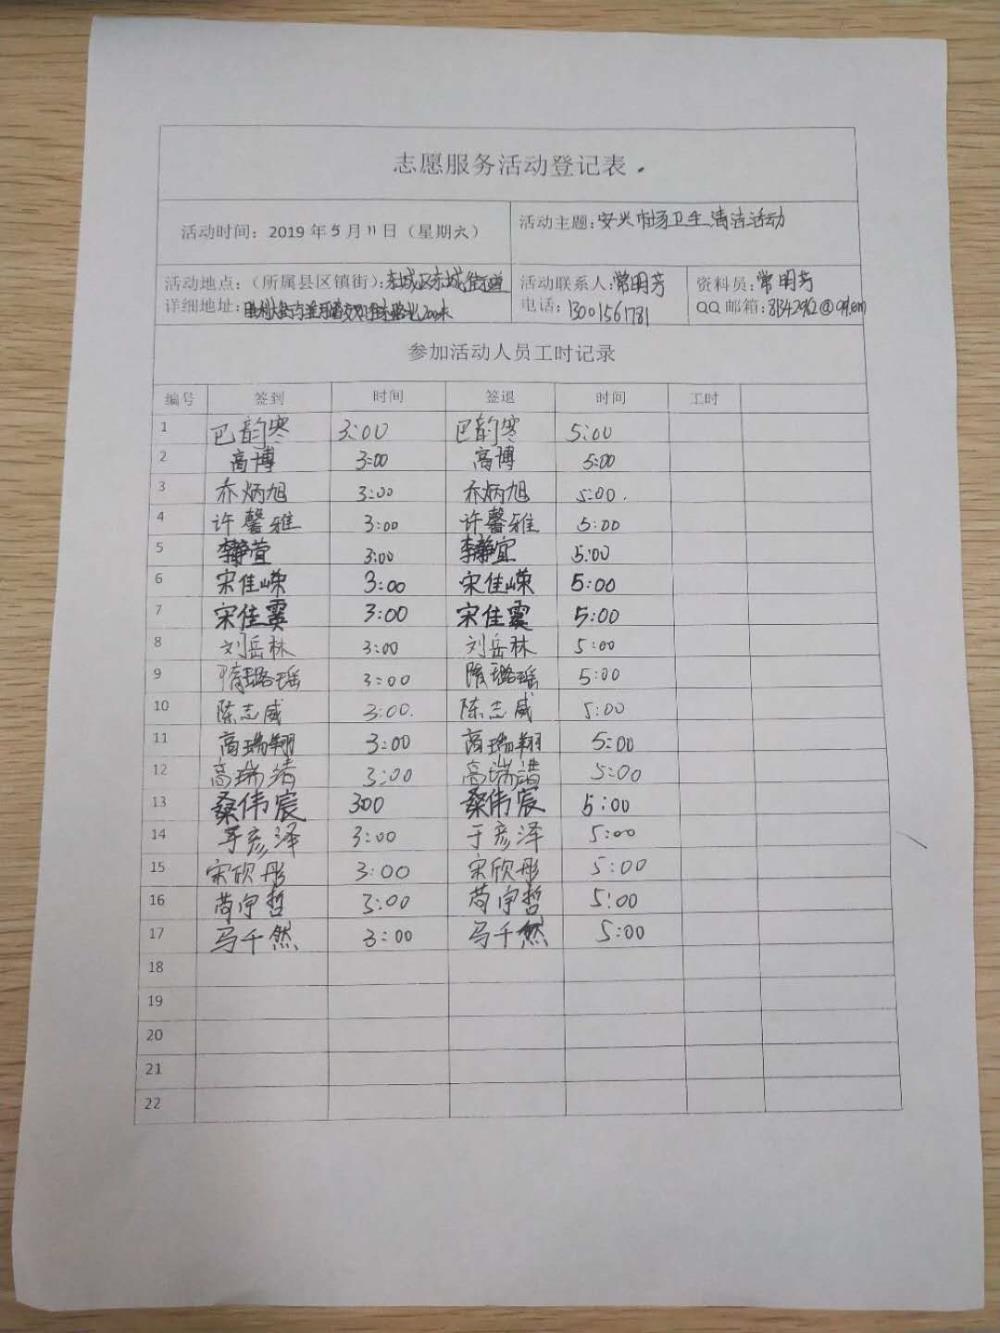 志愿服务活动登记表
活动时间：2019年5月11日（星期六） 活动主题：安兴市场卫生清洁活动
活动地点：（所属县区镇街）：东城区东城街道 活动联系人：常明芳 资料员：常明芳
详细地址： 电话：13001561781 QQ邮箱：
参加活动人员工时记录
编号 签到 时间 签退 时间 工时
1 巴韵寒 3:00 巴韵寒 5:00
2 高博 3:00 高博 5:00
3 乔炳旭 3:00 乔炳旭 5:00.
4 许馨雅 3:00 许馨雅 5:00
5 李静萱 3:00 李静宜 5:00
6 宋佳嵘 3:00 宋佳嵘 5:00
7 宋佳霙 3:00 宋佳霙 5:00
8 刘岳林 3:00 刘岳林 5:00
9 隋璐瑶 3:00 隋璐瑶 5:00
10 陈志威 3:00. 陈志威 5:00
11 高瑞翔 3:00 高瑞翔 5:00
12 高瑞清 3:00 高瑞清 5:00
13 桑伟宸 300 桑伟宸 5:00
14 于彦泽 3:00 于彦泽 5:00
15 宋欣彤 3:00 宋欣彤 5:00
16 苟宇哲 3:00 苟宇哲 5:00
17 马千然 3:00 马千然 5:00
18
19
20
21
22